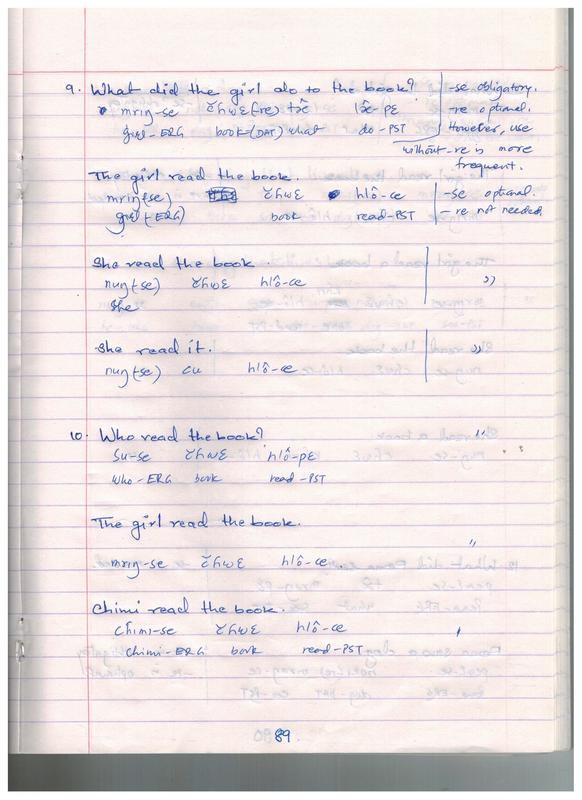 9. What did the girl do to the book? -se obligatory.
mriŋ-se čhwɛ(re) tɜ̂ lɜ̂-pɛ -re optional.
girl-ERG book-(DAT) what do-PST However, use
without -re is more
frequent.
The girl read the book.
mriŋ(se) čhwɛ hlô-ce -se optional.
girl(-ERG) book read-PST -re not needed.
She read the book.
nuŋ(se) čhwɛ hlô-ce ,,
She
She read it.
nuŋ(se) cu hlô-ce ,,
10. Who read the book? "
Su-se čhwɛ hlô-pɛ
Who-ERG book read-PST
The girl read the book.
mriŋ-se čhwɛ hlô-ce "
Chimi read the book.
Chimi-se čhwɛ hlô-ce
Chimi-ERG book read-PST
89